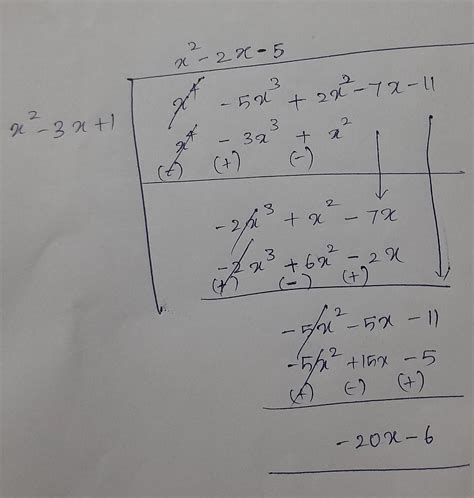 x² - 2x - 5
x² - 3x + 1
x⁴ - 5x³ + 2x² - 7x - 11
x⁴ - 3x³ + x²
(-) (+) (-)
-2x³ + x² - 7x
-2x³ + 6x² - 2x
(+) (-) (+)
-5x² - 5x - 11
-5x² + 15x - 5
(+) (-) (+)
-20x - 6